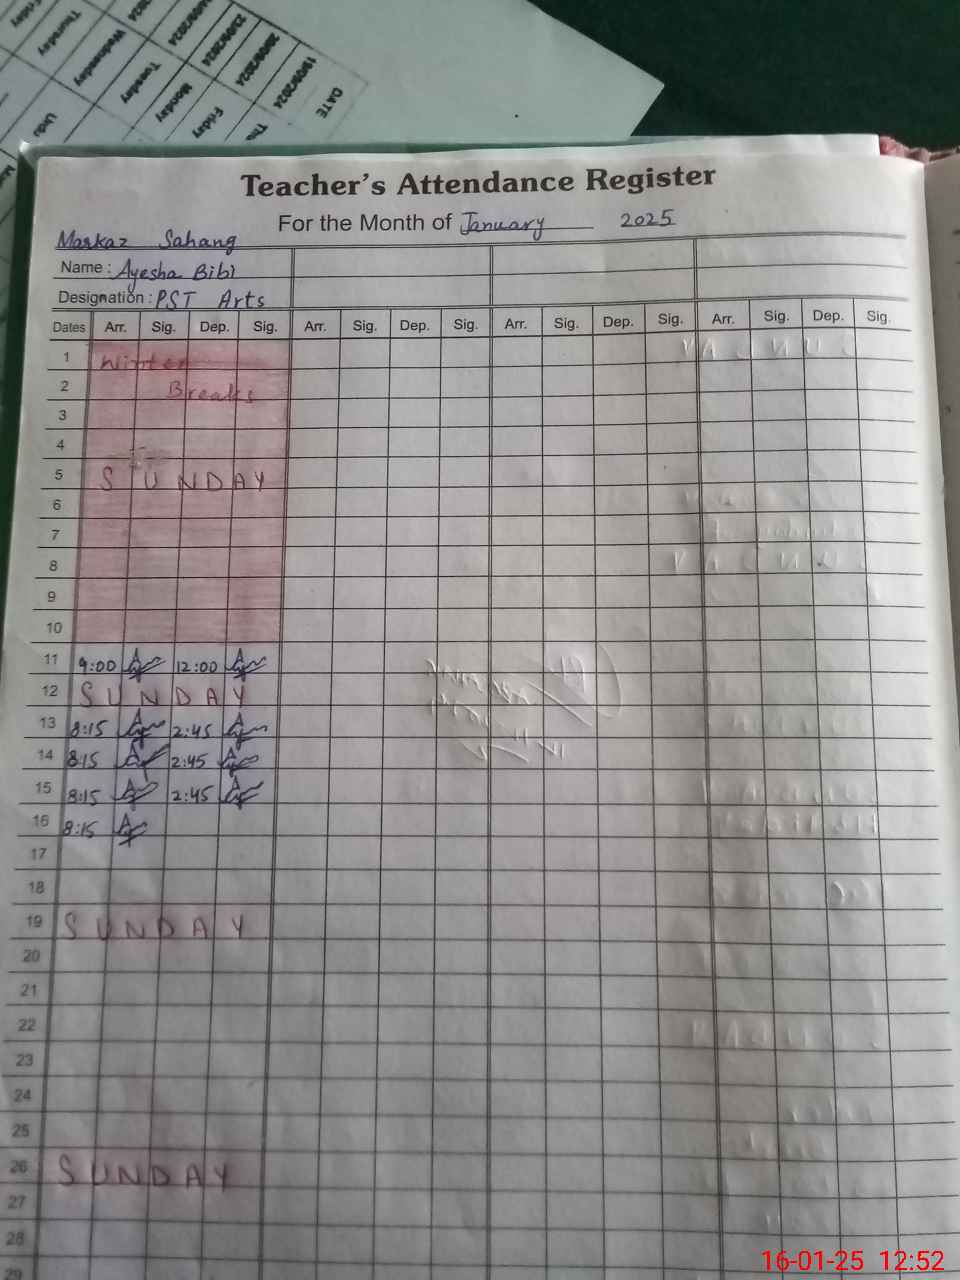 DATE
19/09/2024
20/09/2024 Friday
23/09/2024 Monday
Tuesday
Wednesday
Thursday
Friday
Urdu
Teacher's Attendance Register
For the Month of January 2025
Markaz Sahang
Name : Ayesha Bibi
Designation : PST Arts
Dates Arr. Sig. Dep. Sig. Arr. Sig. Dep. Sig. Arr. Sig. Dep. Sig. Arr. Sig. Dep. Sig.
1 Winter
2 Breaks
3
4
5 SUNDAY
6
7
8
9
10
11 9:00 12:00
12 SUNDAY
13 8:15 2:45
14 8:15 2:45
15 8:15 2:45
16 8:15
17
18
19 SUNDAY
20
21
22
23
24
25
26 SUNDAY
27
28
29
16-01-25 12:52